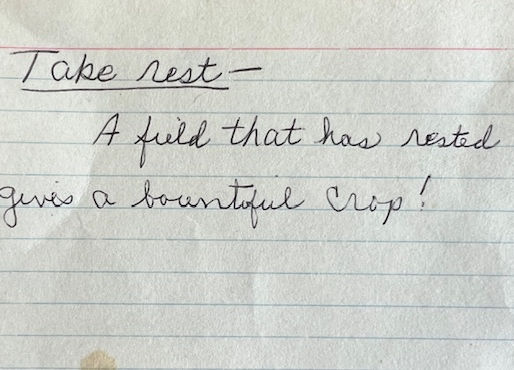 Take rest —
A field that has rested
gives a bountiful crop!